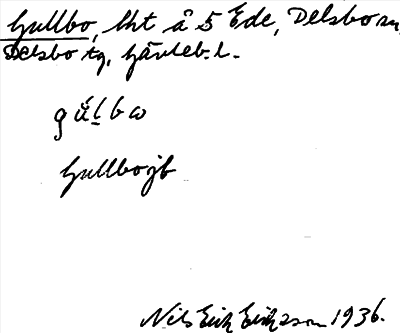 Gullbo, lht å 5 Ede, Delsbo sn,
Delsbo tg, Gävleb. l.
gúlbω
Gullbo jb
Nils Erik Eriksson 1936.